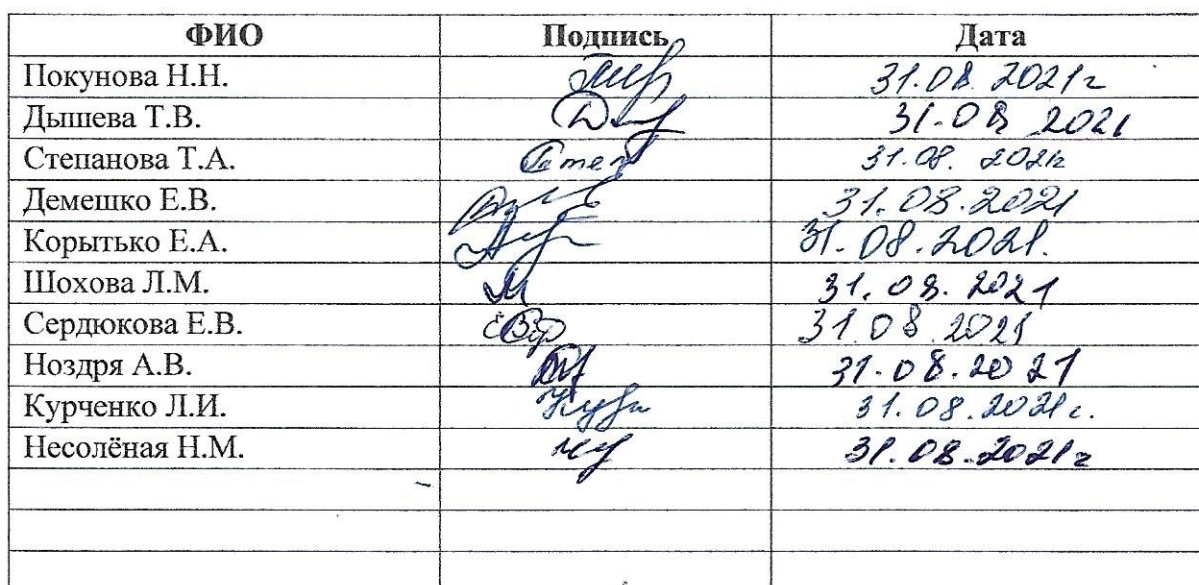 ФИО Подпись Дата
Покунова Н.Н. 31.08.2021г
Дышева Т.В. 31.08.2021
Степанова Т.А. Степ 31.08.2021г
Демешко Е.В. 31.08.2021
Корытько Е.А. 31.08.2021.
Шохова Л.М. 31.08.2021
Сердюкова Е.В. 31.08.2021
Ноздря А.В. 31.08.2021
Курченко Л.И. 31.08.2021г.
Несолёная Н.М. 31.08.2021г